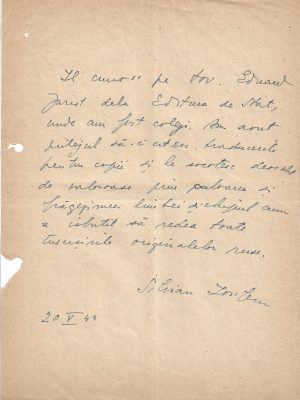 Il cunosc pe tov. Eduard
Jurist dela Editura de Stat,
unde am fost colegi. Am avut
prilejul să-i citesc traducerile
pentru copii și le socotesc deosebit
de valoroase prin culoarea și
frăgezimea limbei, și chipul cum
a isbutit să redea toate
însușirile originalelor ruse.
Silvian Iosifescu
20 V 49